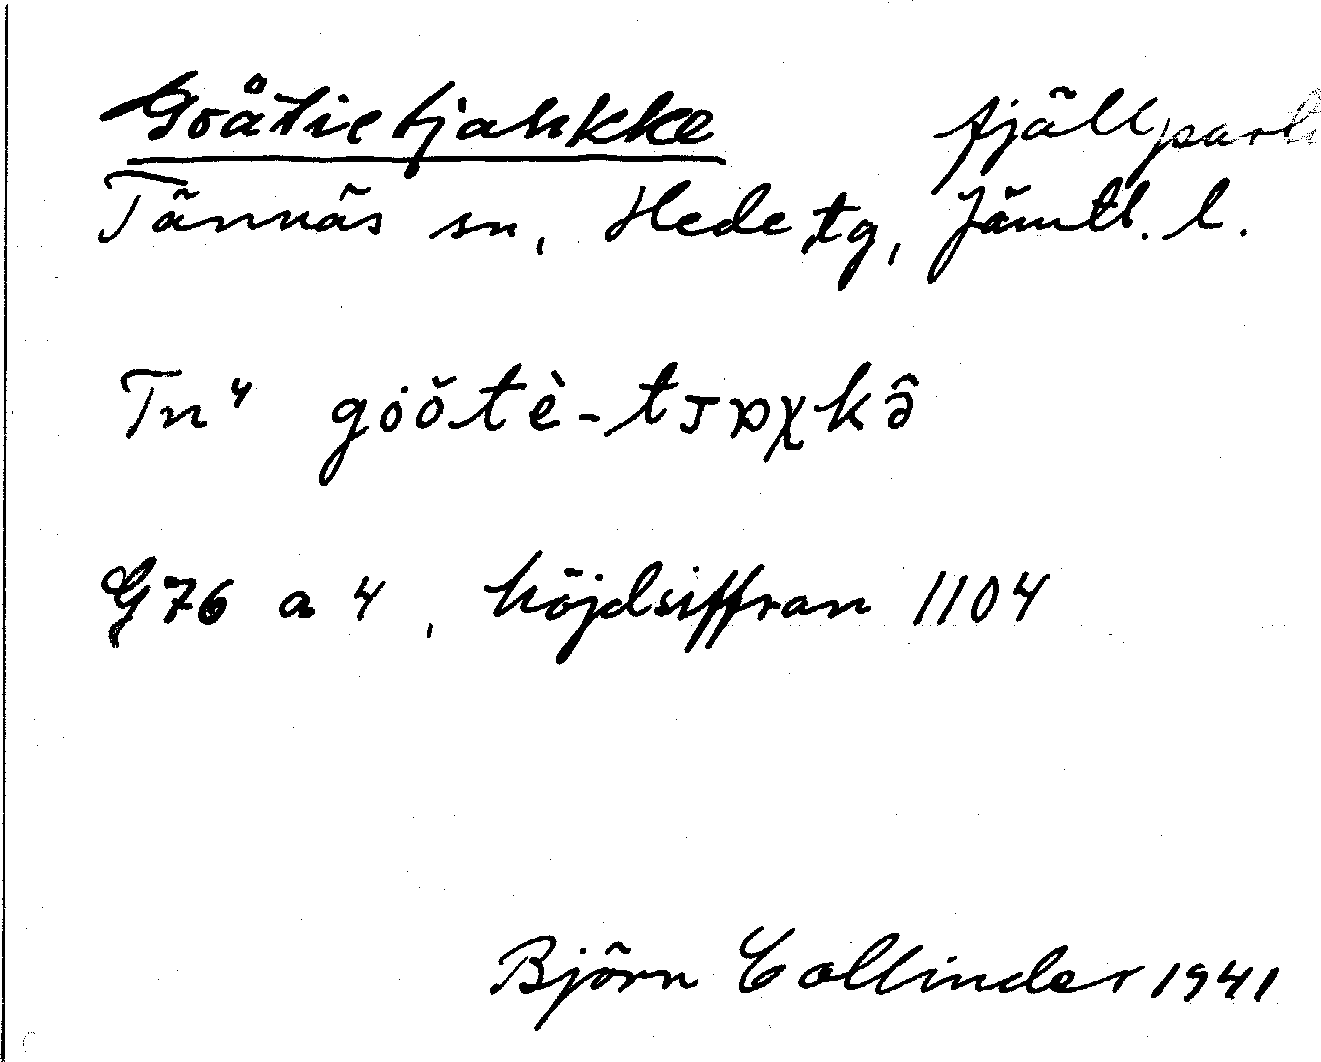 Goåtietjahkke fjällparti
Tännäs sn, Hede tg, Jämtl. l.
Tn⁴ gȯŏtè-tᴊɒχkə̑
G76 a 4, höjdsiffran 1104
Björn Collinder 1941